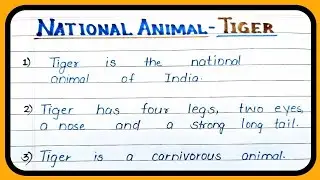 NATIONAL ANIMAL-TIGER
1) Tiger is the national
animal of India.
2) Tiger has four legs, two eyes,
a nose and a strong long tail.
3) Tiger is a carnivorous animal.